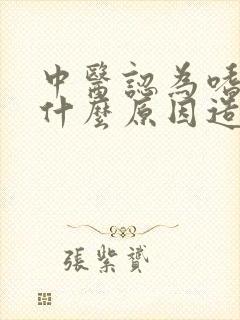 中醫認為嗜
什麼原因造
張紫贇